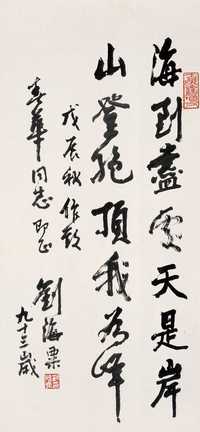 海到盡處天是岸
山登絕頂我為峰
戊辰秋作致
春華同志即正
劉海粟
九十三歲